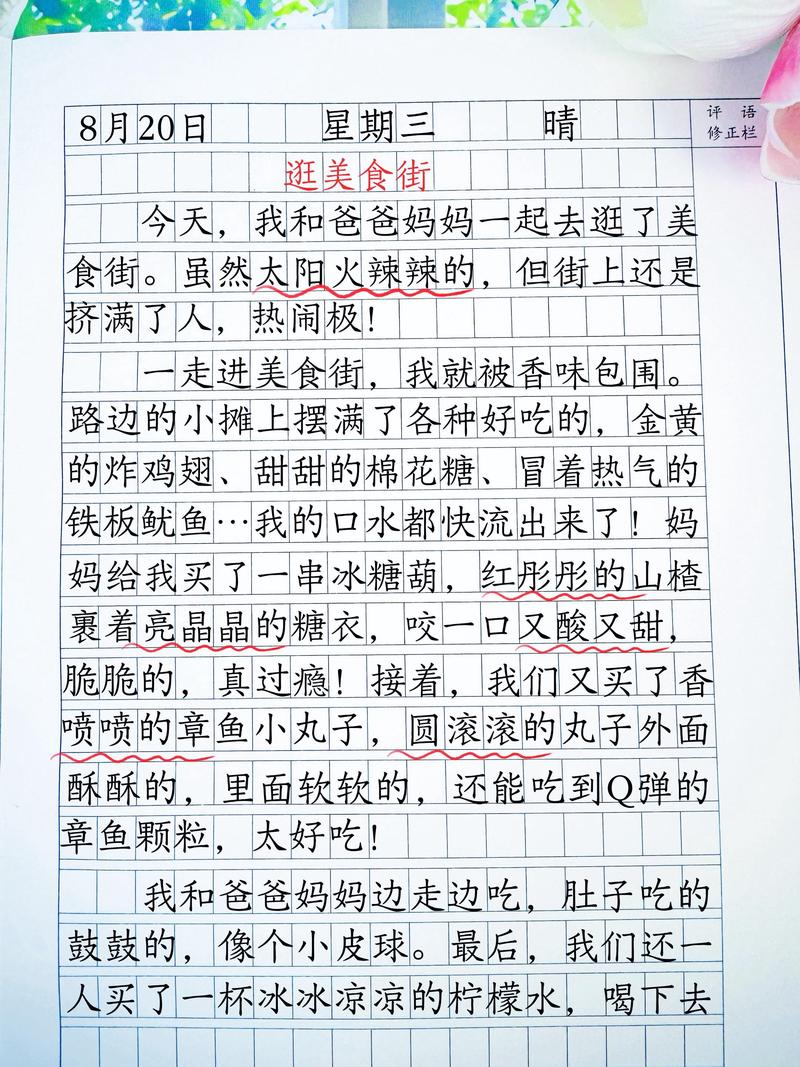 8月20日 星期三 晴
评语
修正栏
逛美食街
今天，我和爸爸妈妈一起去逛了美
食街。虽然太阳火辣辣的，但街上还是
挤满了人，热闹极！
一走进美食街，我就被香味包围。
路边的小摊上摆满了各种好吃的，金黄
的炸鸡翅、甜甜的棉花糖、冒着热气的
铁板鱿鱼…我的口水都快流出来了！妈
妈给我买了一串冰糖葫，红彤彤的山楂
裹着亮晶晶的糖衣，咬一口又酸又甜，
脆脆的，真过瘾！接着，我们又买了香
喷喷的章鱼小丸子，圆滚滚的丸子外面
酥酥的，里面软软的，还能吃到Q弹的
章鱼颗粒，太好吃！
我和爸爸妈妈边走边吃，肚子吃的
鼓鼓的，像个小皮球。最后，我们还一
人买了一杯冰冰凉凉的柠檬水，喝下去